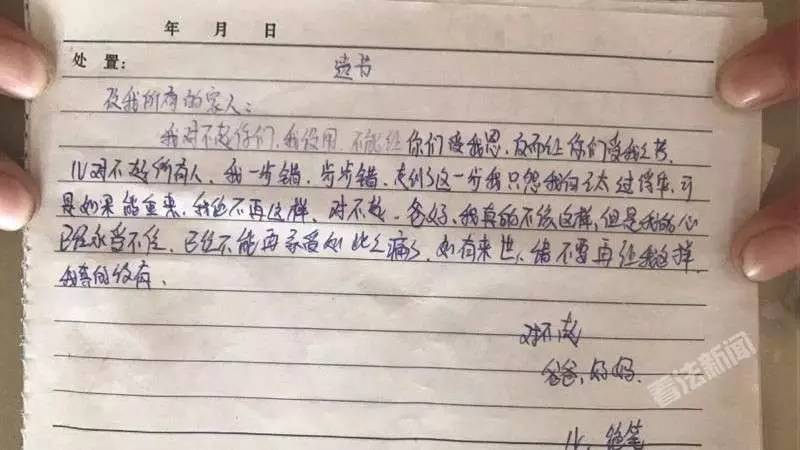 年 月 日
处置: 遗书
及我所有的家人:
我对不起你们,我没用,不能让你们受我恩,反而让你们受我之苦,
对不起所有人,我一步错,步步错,走到了这一步我只怨我自己太过信,可
是如果能重来,我绝不再这样,对不起,爸妈,我真的不该这样,但是我的心
已经承受不住,已经不能再承受如此之痛,如有来世,请不要再让我这样,
我真的
对不起
爸爸,妈妈.
绝笔
看法新闻